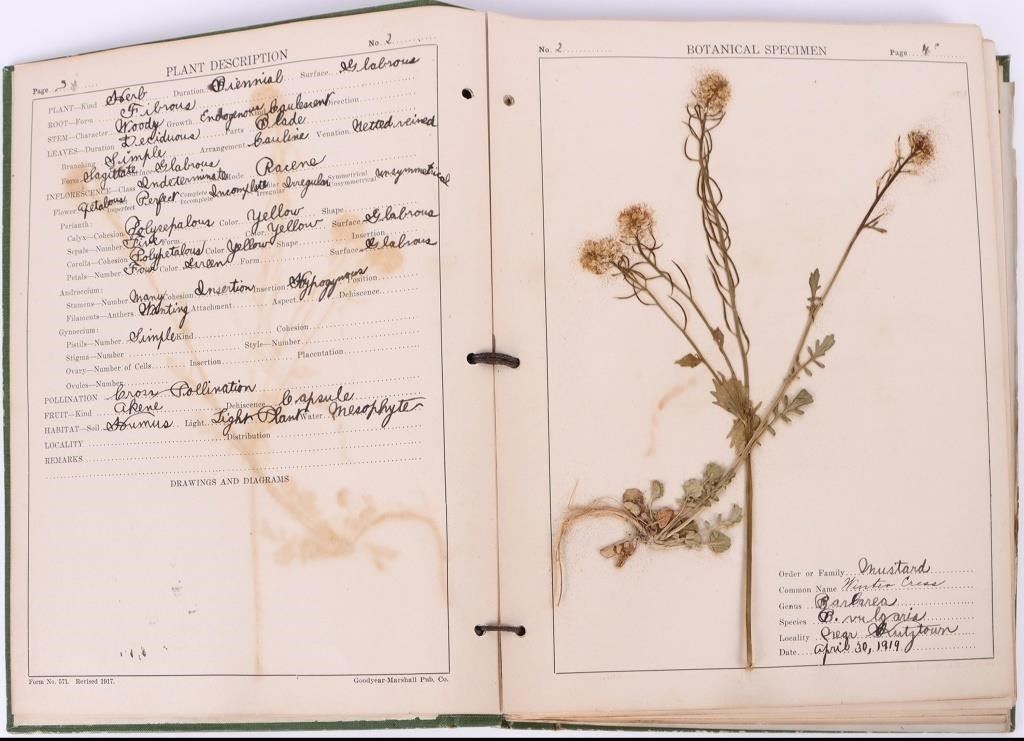 PLANT DESCRIPTION
No. 2
Page 3
PLANT—Kind Herb Duration Biennial Surface Glabrous
ROOT—Form Fibrous
STEM—Character Woody Growth Endogenous Caulescent Direction
LEAVES—Duration Deciduous Parts Blade
Branching Simple Arrangement Cauline Venation Netted veined
Form Sagittate Surface Glabrous
INFLORESCENCE—Class Indeterminate Mode Racene
Flower Petalous Imperfect Perfect Complete Incomplete Incomplete Irregular Irregular Symmetrical Unsymmetrical Unsymmetrical
Perianth:
Calyx—Cohesion Polysepalous Color Yellow Shape
Sepals—Number Form Color Yellow Surface Glabrous
Corolla—Cohesion Polypetalous Color Yellow Shape Insertion
Petals—Number Four Color Green Form Surface Glabrous
Androecium:
Stamens—Number Many Cohesion Insertion Insertion Hypogynous Position
Filaments—Anthers Wanting Attachment Aspect Dehiscence
Gynoecium:
Pistils—Number Simple Kind Cohesion
Stigma—Number Style—Number
Ovary—Number of Cells Insertion Placentation
Ovules—Number
POLLINATION Cross Pollination
FRUIT—Kind Akene Dehiscence Capsule
HABITAT—Soil Humus Light Light Plant Water Mesophyte
LOCALITY Distribution
REMARKS
DRAWINGS AND DIAGRAMS
Form No. 571. Revised 1917.
Goodyear-Marshall Pub. Co.
No. 2
BOTANICAL SPECIMEN
Page 4
Order or Family Mustard
Common Name Winter Cress
Genus Barbarea
Species B. vulgaris
Locality Near Kutztown
Date April 30, 1919